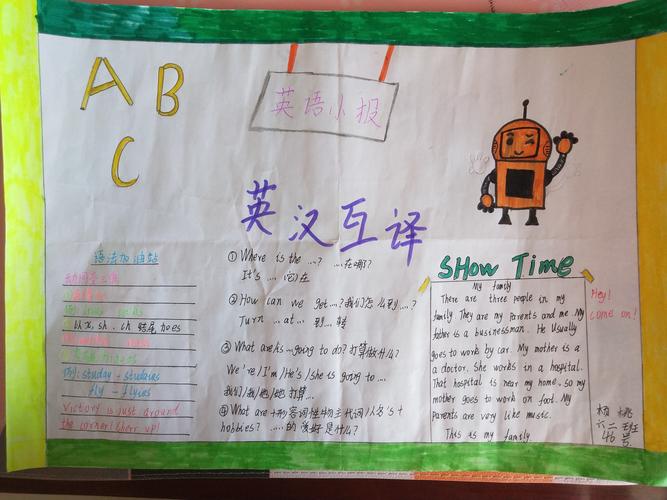 A B
C
英语小报
英汉互译
语法加油站
以x, sh, ch 结尾加es
例: studay - studaies
fly - flyies
Victory is just around
the corner! Cherr up!
① Where is the ...? ....在哪?
It's .... 它)在
② How can we get ....? 我们怎么到....?
Turn ...at... 到...转
③ What are/is ...going to do? 打算做什么?
We're/I'm/He's/she is going to ...
我们/我/他/她打算...
④ What are + 形容词性物主代词/人名's +
hobbies? .....的爱好是什么?
SHow Time
My family
There are three people in my
family They are my Parents and me. My
father is a businessman. He Usually
goes to work by car. My mother is a
a doctor. She works in a hospital.
That hospital is near my home. so my
mother goes to work on foot. My
parents are very like music.
This is my family
Hey!
come on!
杨桃
六二班
46号